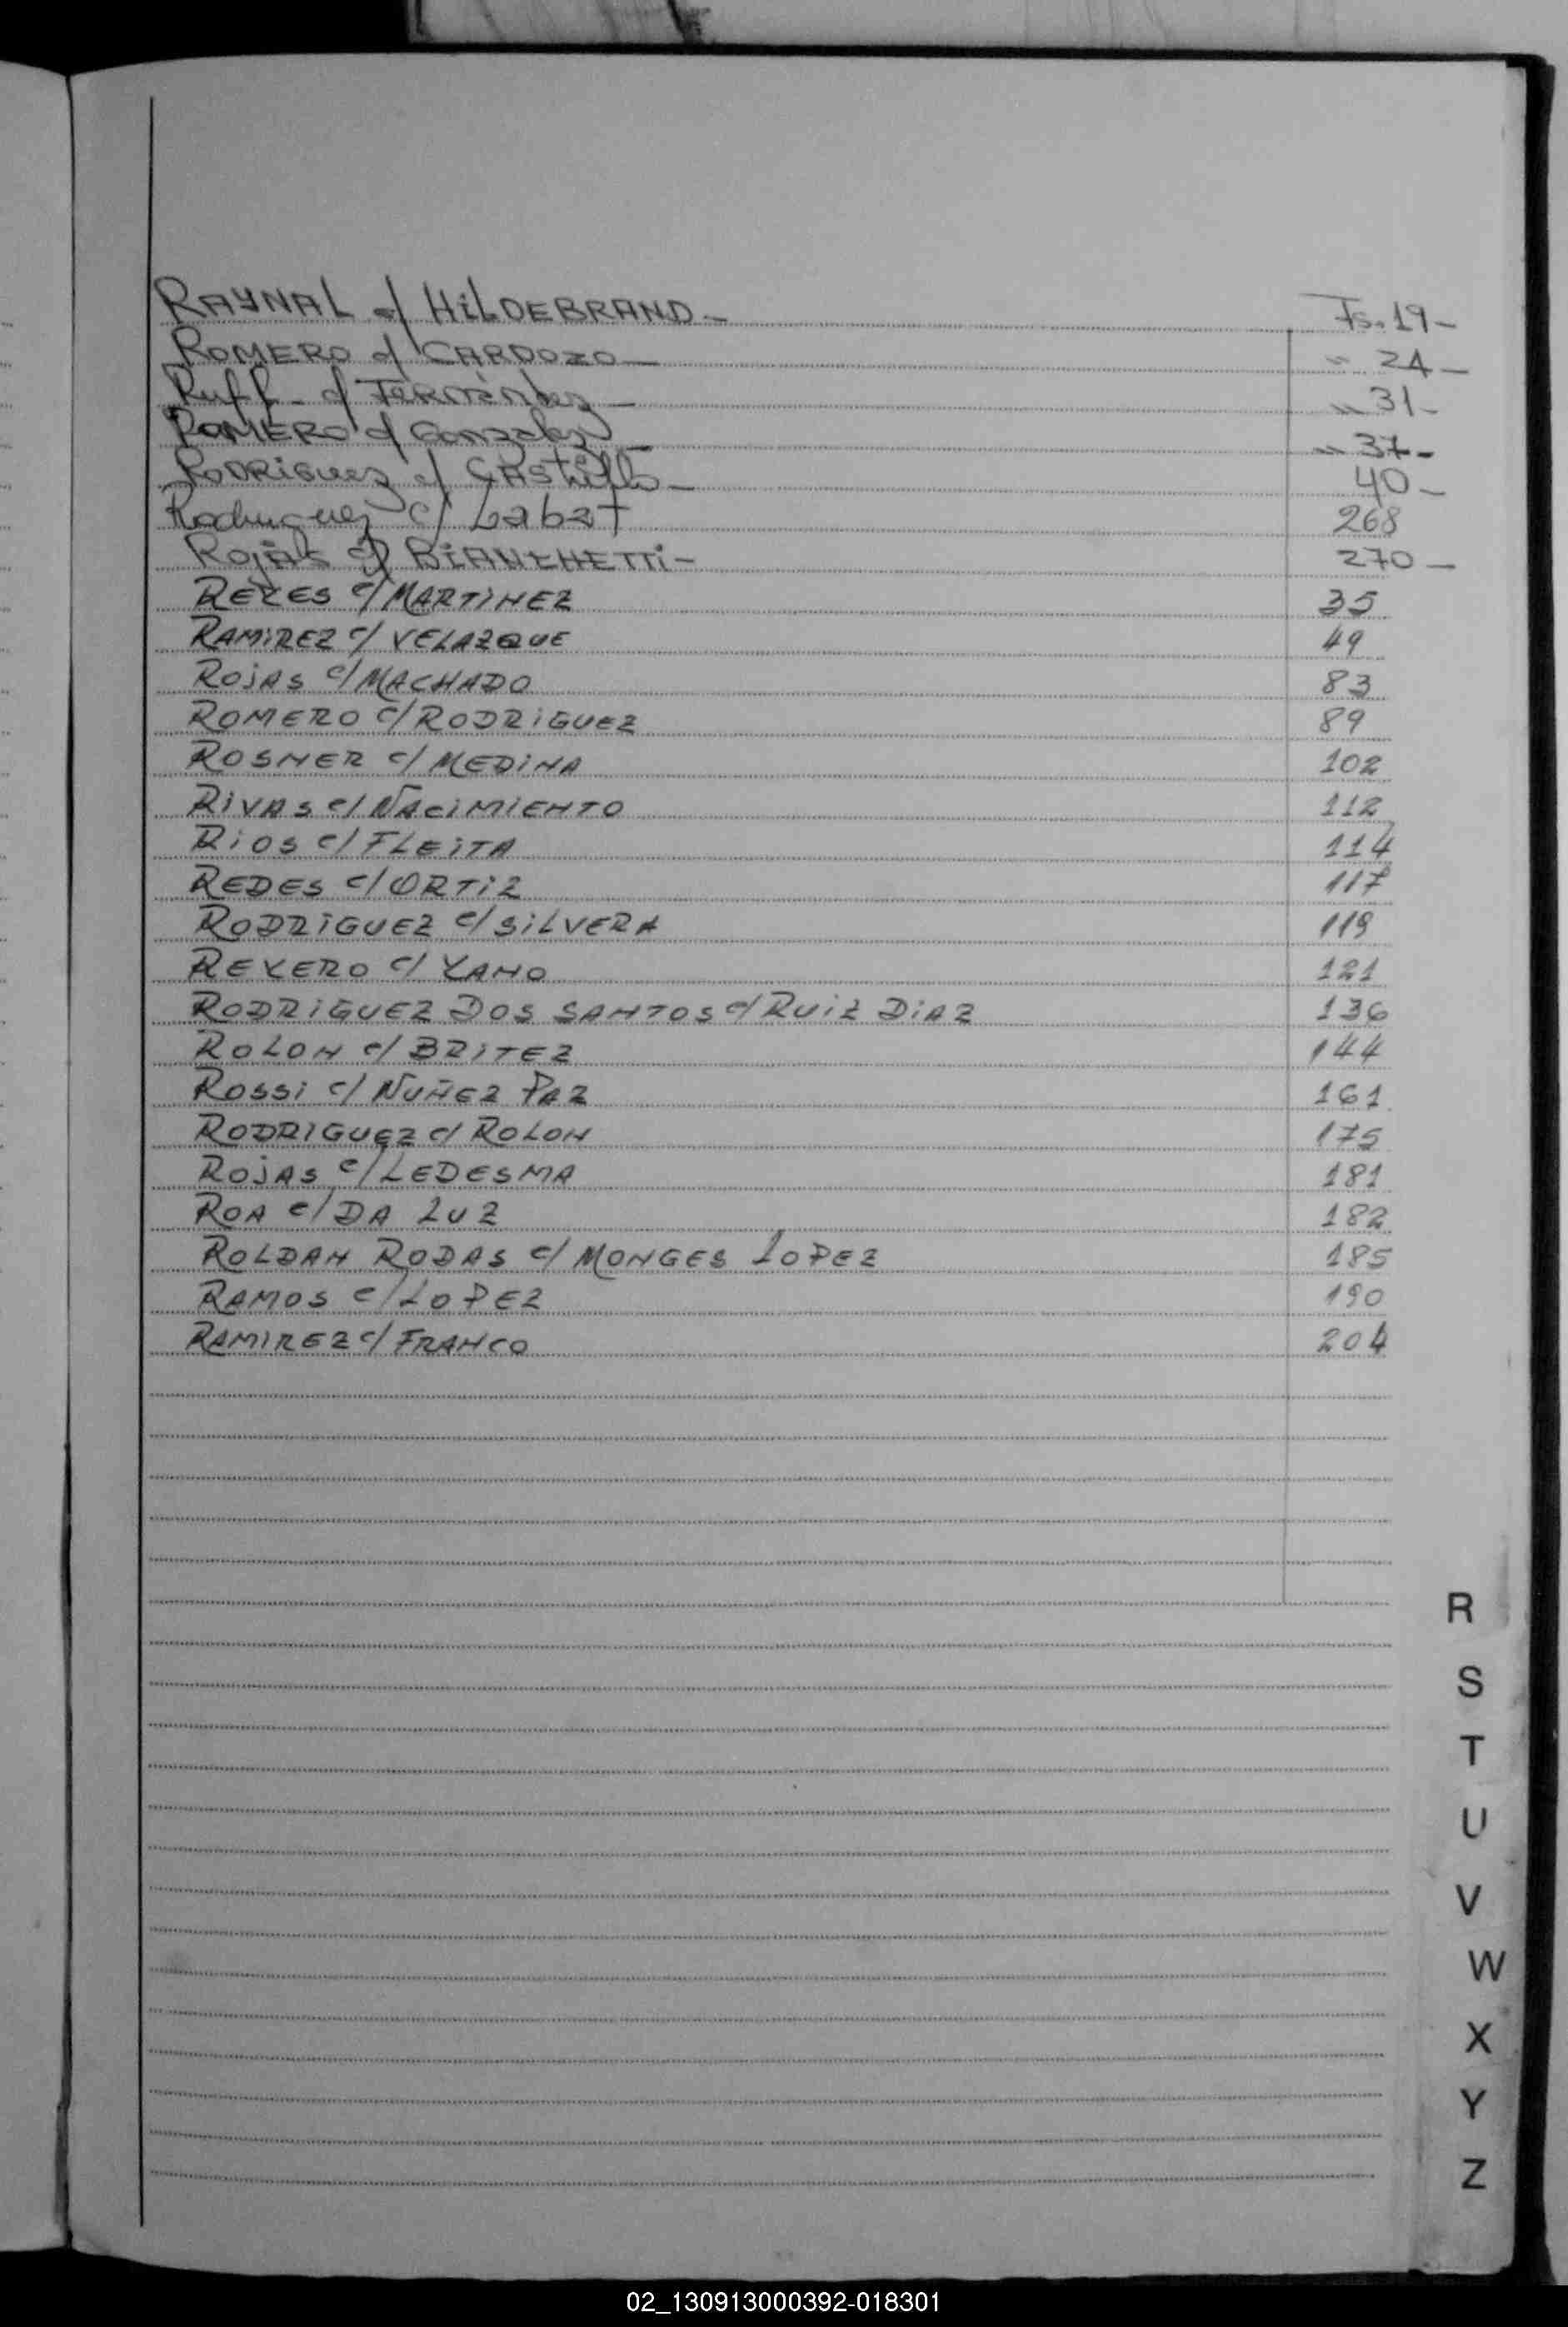 RAYNAL c/ HILDEBRAND - Fs. 19 -
ROMERO c/ CARDOZO - " 24 -
Ruff - c/ Fernández - " 31 -
ROMERO c/ Gonzalez " 37 -
RODRiGuez c/ CAStillo - 40 -
Rodriguez c/ Labat 268
ROjAS c/ BiANCHETTi - 270 -
REYES c/ MARTINEZ 35
RAMIREZ c/ VELAZQUE 49
ROjAS c/ MACHADO 83
ROMERO c/ RODRIGUEZ 89
ROSNER c/ MEDINA 102
RIVAS c/ NACIMIENTO 112
RIOS c/ FLEITA 114
REDES c/ ORTIZ 117
RODRIGUEZ c/ SILVERA 119
REYERO c/ YANO 121
RODRIGUEZ DOS SANTOS c/ RUIZ DIAZ 136
ROLON c/ BRITEZ 144
ROSSI c/ NUÑEZ PAZ 161
RODRIGUEZ c/ ROLON 175
ROJAS c/ LEDESMA 181
ROA c/ DA LUZ 182
ROLDAN RODAS c/ MONGES LOPEZ 185
RAMOS c/ LOPEZ 190
RAMIREZ c/ FRANCO 204
R
S
T
U
V
W
X
Y
Z
02_130913000392-018301